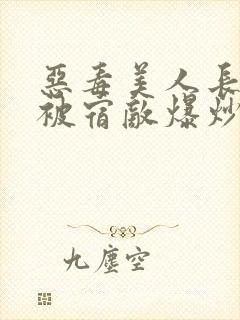 惡毒美人長
被宿敵爆炒
九塵空